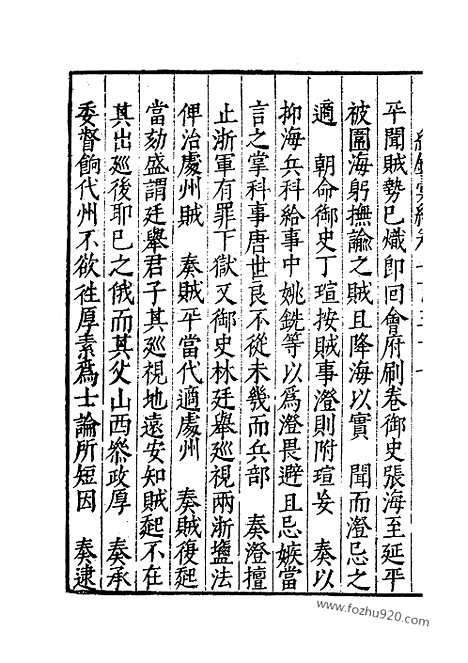 平聞賊勢已熾即回會府刷卷御史張海至延平
被圍海躬撫諭之賊且降海以實　聞而澄忌之
適　朝命御史丁瑄按賊事澄則附瑄妄　奏以
抑海兵科給事中姚銑等以為澄畏避且忌嫉當
言之掌科事唐世良不從未幾而兵部　奏澄擅
止浙軍有罪下獄又御史林廷舉巡視兩浙鹽法
俾治處州賊　奏賊平當代適處州　奏賊復起
當劾盛謂廷舉君子其巡視地遠安知賊起不在
其出巡後耶已之俄而其父山西叅政厚　奏承
委督餉代州不欲徃厚素爲士論所短因　奏逮
www.fozhu920.com